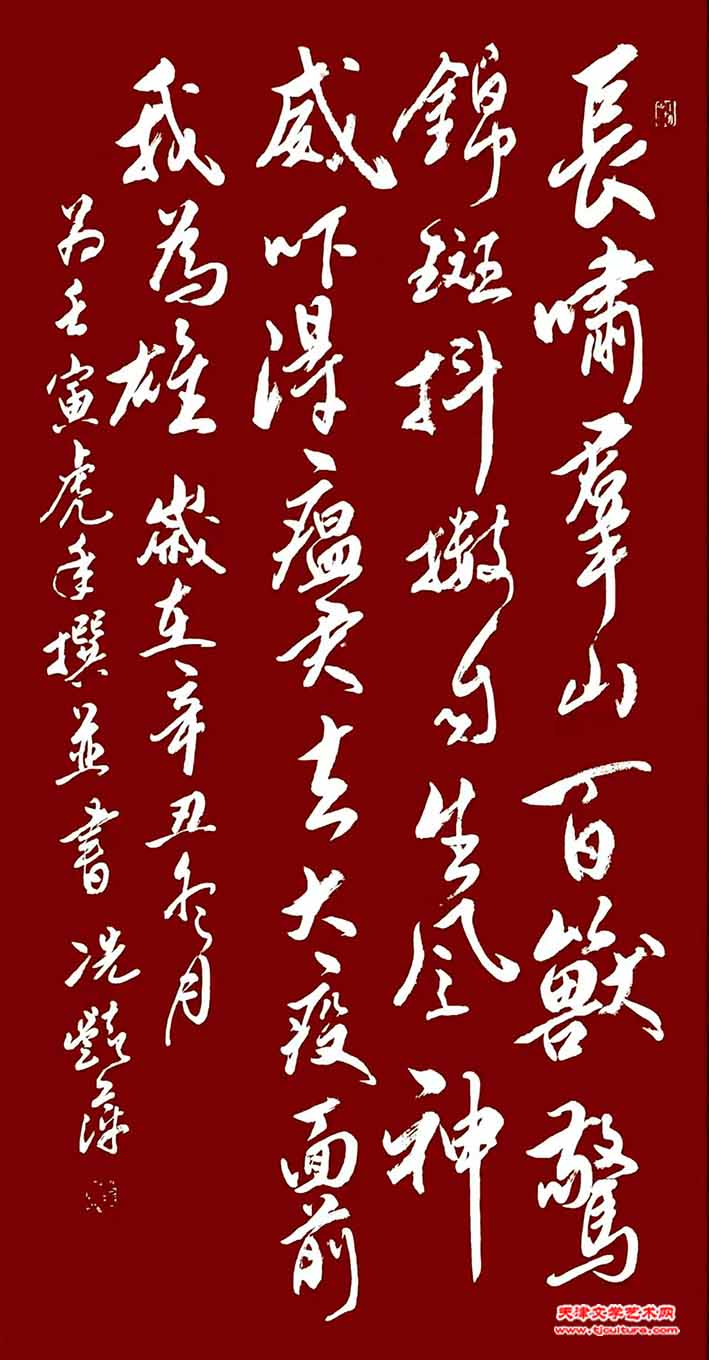 長嘯羣山百獸驚
錦斑抖擻自生風神
威吓得瘟君去大疫面前
我為雄 歲在辛丑冬月
為壬寅虎年撰並書 冼艷萍
天津文学艺术网
www.tjcultura.com